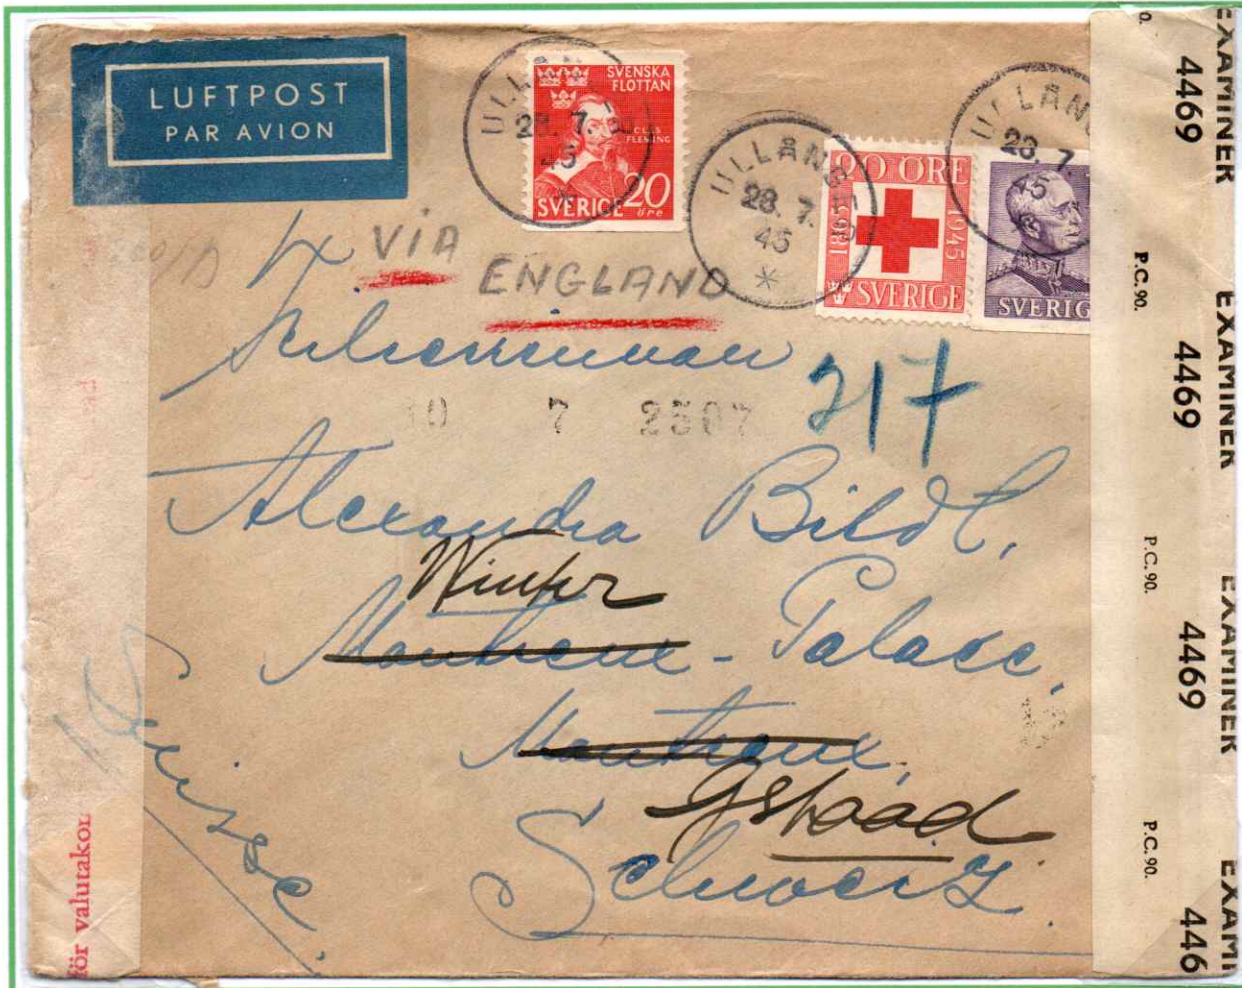 LUFTPOST
PAR AVION
SVENSKA
FLOTTAN
CLAS
FLEMING
SVERIGE 20
öre
ULLÅN
28. 7.
45
ULLÅNG
28. 7.
45
20 ÖRE
1865
1945
SVERIGE
ULLÅN
28. 7.
45
SVERIG
VIA
ENGLAND
Friherrinnan
217
10 7 2507
Alexandra Bildt,
Winter
Montreux - Palace,
Montreux,
Gstaad
Schweiz.
Suisse.
för valutakon
EXAMINER
4469
P.C. 90.
EXAMINER
4469
P.C. 90.
EXAMINER
4469
P.C. 90.
EXAMI
446